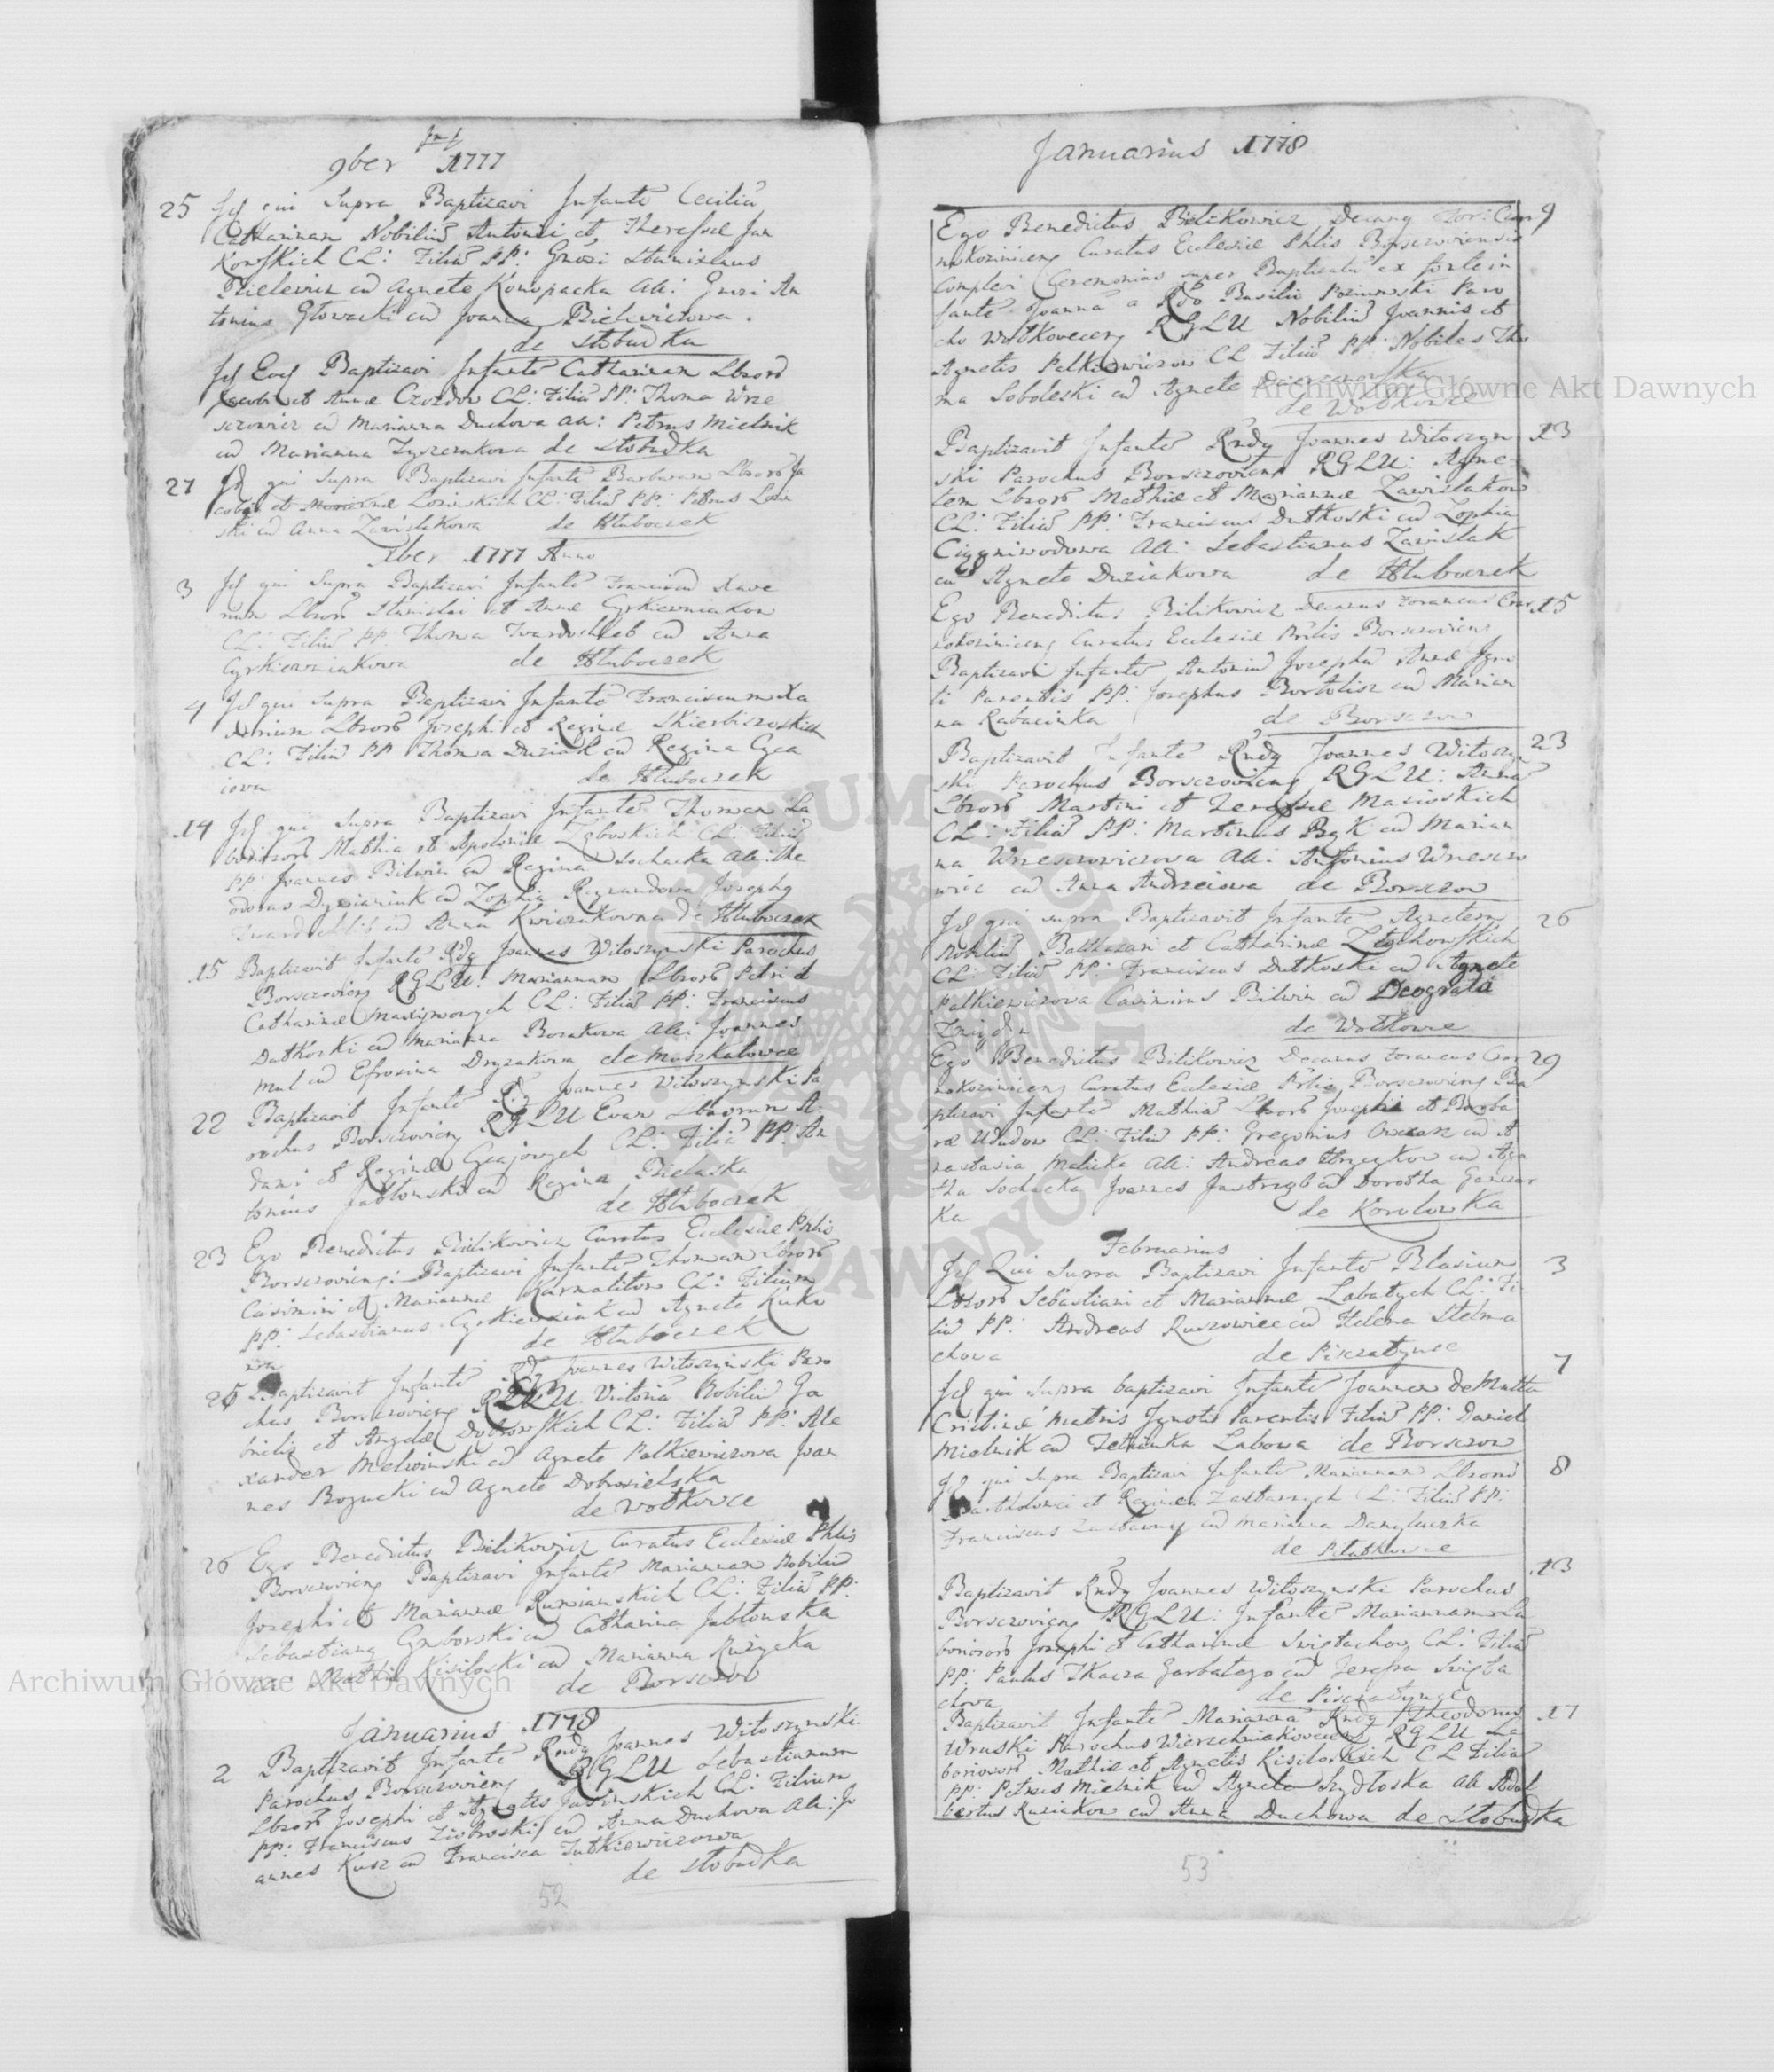 9ber 1777
25 Id qui Supra Baptizavi Infantē Ceciliā
Catharinam Nobiliū Antonii et Theressæ Jan
Kowskich CL: Filiā PP: Gnōsi Stanislaus
Bielewicz cū Agnete Konopacka Ali: Gnosi An
tonius Głowacki cū Joanna Bielwiczowa.
de Słobudka
Id Eod Baptizavi Infantē Catharinam Lborō
Jacobi et Annæ Czozdow CL: Filiā PP: Thoma Wrze
sczowicz cū Marianna Duchowa Ali: Petrus Mielnik
cū Marianna Tyszczukowa de Słobudka
27 Id qui Supra Baptizavi Infantē Barbaram Lborō Ja
cobi et Mariannæ Losinskich CL: Filiā PP: Petrus Losin
ski cū Anna Zawislakowa de Hłuboczek
Xber 1777 Anno
3 Id qui Supra Baptizavi Infantē Franciscū Xave
rium Lborō Stanislai et Annæ Cyrkiewniakow
CL: Filiū PP: Thoma Twardochleb cū Anna
Cyrkiewniakowa de Hłuboczek
4 Id qui Supra Baptizavi Infantē Franciscum Xa
verium Lborō Josephi et Reginæ Skierbiszoskich
CL: Filiū PP Thoma Duziak cū Regina Gaja
iowa
de Hłuboczek
14 Id qui Supra Baptizavi Infantē Thomam La
boriosorō Mathia et Apoloniæ Zęboskich CL: Filiū
PP: Joannes Bilwin cū Regina Sochacka Ali: The
odorus cū Zophia Josephg
Twardochlib cū Anna Kwiczukowna de Hłuboczek
15 Baptizavit Infantē Rdg Joannes Witoszynski Parochus
Borsczovieng RGLU: Mariannam Lborō Petri et
Catharinæ Maxymowych CL: Filiā PP: Franciscus
Dutkoski cū Marianna Bozakowa Ali: Joannes
Mul cū Efrosina Dryzakowa de Muszkatowce
22 Baptizavit Infantē Rdg Joannes Witoszynski Pa
rochus Borsczovieng RGLU Evam Lborum A
dami et Reginæ Gajowych CL: Filiā PP: An
tonius Jabłonski cū Regina Bielaska
de Hłuboczek
23 Ego Benedictus Bilikowicz Curatus Ecclesiæ Phlis
Borsczovieng: Baptizavi Infantē Thomam Lborō
Casimiri et Mariannæ Karmalitow CL: Filium
PP: Sebastianus Cyrkiewniak cū Agnete Kuko
wa
de Hłuboczek
25 Baptizavit Infantē Rdg Joannes Witoszynski Paro
chus Borsczovieng RGLU Victoriā Nobiliū Ga
brielis et Angelæ Dobrowskich CL: Filiā PP: Ale
xander Melwinski cū Agnete Palkiewiczowa Joan
nes Rogucki cū Agnete Dobrosielska
de Wołkowce
26 Ego Benedictus Bilikowicz Curatus Ecclesiæ Phlis
Borsczovieng Baptizavi Infantē Mariannam Nobiliū
Josephi et Mariannæ Rumianskich CL: Filiā PP:
Sebastiang Gymborski cū Catharina Jabłonska
Ali: Mathia Kisiloski cū Marianna Ruzycka
de Borsczow
Januarius 1778
2 Baptizavit Infantē Rndg Joannes Witoszynski
Parochus Borsczovieng RGLU Sebastianum
Lborō Josephi et Agnetis Jasinskich CL: Filium
PP: Franciscus Ziobroski cū Anna Duchowa Ali: Jo
annes Kusz cū Francisca Jutkiewiczowa
de Słobudka
52
Januarius 1778
Ego Benedictus Bielikowicz Decang For: Czar 9
nokozinieng Curatus Ecclesiæ Phlis Borsczoviensis
Complevi Ceremonias super Baptizatū ex fonte in
fantē Joannā a Rdo Basilio Paro
cho Wołkoveceng RGLU Nobiliū Joannis et
Agnetis Palkiewiczow CL Filiā PP: Nobiles Tho
ma Soboleski cū Agnete Dzierzanowska
de Wołkowce
Baptizavit Infantē Rndg Joannes Witoszyn 13
ski Parochus Borsczovieng RGLU: Agne-
tem Lborō Mathiæ et Mariannæ Zawislakow
CL: Filiā PP: Franciscus Dutkoski cū Zophia
Ciągniwodowa Ali: Sebastianus Zawislak
cū Agnete Duziakowa de Hłuboczek
Ego Benedictus Bilikowicz Decanus Foraneus Czar 15
nokozinieng Curatus Ecclesiæ Prlis Borsczovieng
Baptizavi Infantē Antoniū Josephū Annæ Igno
ti Parentis PP: Josephus Bortolisz cū Marian
na Rabacinka de Borsczow
Baptizavit Infantē Rndg Joannes Witoszyn 23
ski Parochus Borsczovieng RGLU: Annā
Lborō Martini et Teressæ Masioskich
CL: Filiā PP: Martinus Bąk cū Marian
na Wrzesczowiczowa Ali: Antonius Wrzesczo
wic cū Anna Andrzeiowa de Borsczow
Id qui supra Baptizavit Infantē Agnetem 26
Nobiliū Balthazari et Catharinæ Zdychowskich
CL: Filiā PP: Franciscus Dutkoski cū Agnete
Palkiewiczowa Casimirus Bilwin cū Deograta
de Wołkowce
Ego Benedictus Bilikowicz Decanus Foraneus Czar 29
nokozinieng Curatus Ecclesiæ Prlis Borsczovieng Ba
ptizavi Infantē Mathiā Lborō Josephi et Barba
ræ Ududow CL: Filiū PP: Gregorius cū A
nastasia Malicka Ali: Andreas Hryczkow cū Aga
tha Sochacka Joannes Jastrzęb cū Dorotha Gancar
Ka de Korolowka
Februarius
Id Qui Supra Baptizavi Infantē Blasium 3
Lborō Sebastiani et Mariannæ Labatych CL: Fi
liū PP: Andreas Ruszowiec cū Helena Stelma
chowa de Pisczatynce
Id qui Supra baptizavi Infantē Joannem De Multa 7
Cristinæ Matris Ignotis Parentis Filiū PP: Daniel
Mielnik cū Tetianka Labowa de Borsczow
Id qui Supra Baptizavi Infantē Mariannam Lborō 8
Bartholomei et Reginæ Zastawnych CL: Filiā PP:
Franciscus Zastawny cū Marianna Danyluczka
de Słatkowce
13
Baptizavit Rndg Joannes Witoszynski Parochus
Borsczovieng RGLU: Infantē Mariannam La
boriosorō Josephi et Catharinæ Swiętachow CL: Filiā
PP: Paulus Tkacza Garbatego cū Teressa Swięta
chowa de Pisczatynce
Baptizavit Infantē Mariannā Rndg Theodorus 17
Wruski Parochus Wierzchniakovceng RGLU La
boriosorō Mathiæ et Agnetis Kisiloskich CL Filiā
PP: Petrus Mielnik cū Agneta Szydłoska Ali Adal
bertus Ruzickow cū Anna Duchowa de Słobudka
53
Archiwum Główne Akt Dawnych
Archiwum Główne Akt Dawnych